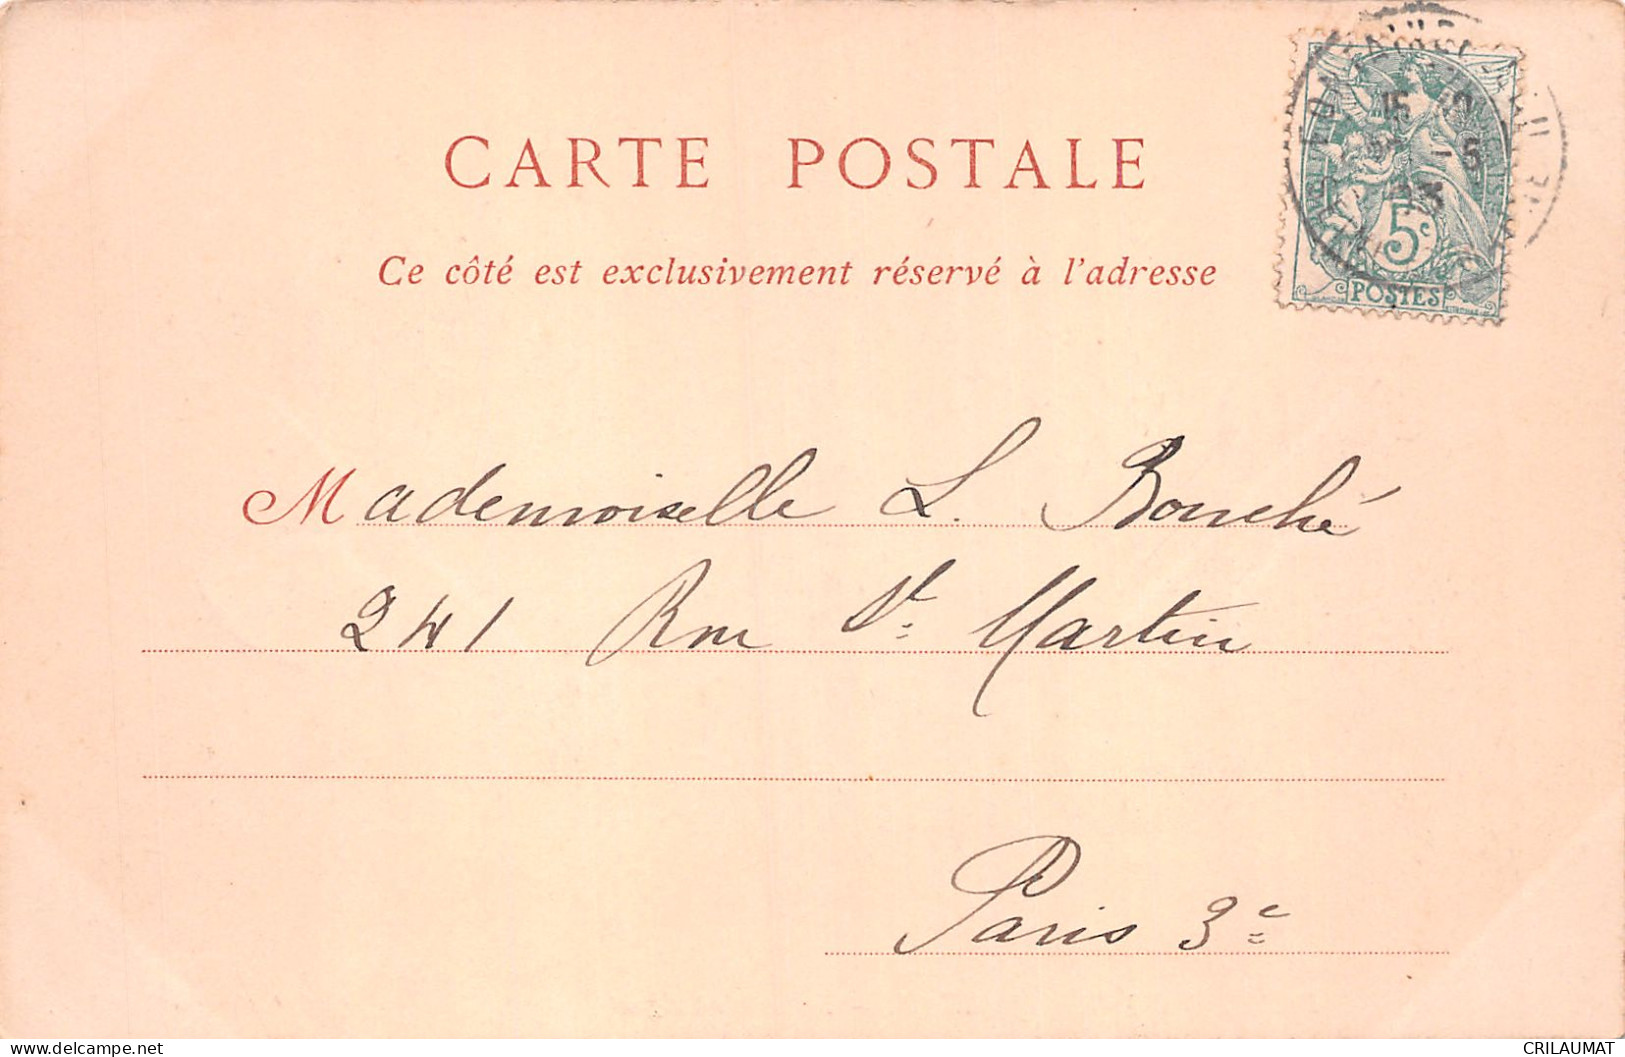 CARTE POSTALE
Ce côté est exclusivement réservé à l'adresse
5c
POSTES
15
-5
03
Mademoiselle L. Bouché
241 Rue St. Martin
Paris 3e
CRILAUMAT